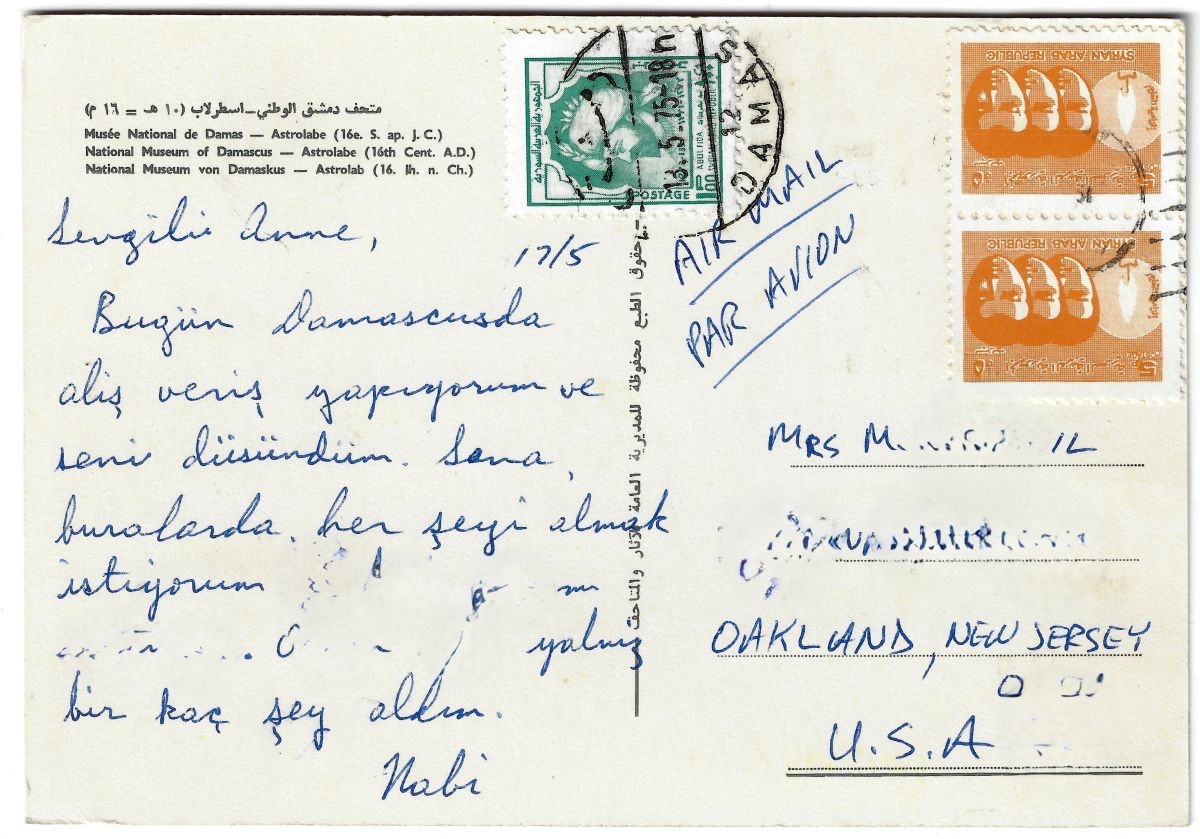 متحف دمشق الوطني – اسطرلاب (١٠ هـ = ١٦ م)
Musée National de Damas — Astrolabe (16e. S. ap. J. C.)
National Museum of Damascus — Astrolabe (16th Cent. A.D.)
National Museum von Damaskus — Astrolab (16. Ih. n. Ch.)
Sevgili Anne,
17/5
Bugün Damascusda
aliş veriş yapıyorum ve
seni düsündüm. Sana
buralarda her şeyi almak
istiyorum
yalnız
bir kaç şey aldım.
Nabi
حقوق الطبع محفوظة للمديرية العامة للآثار والمتاحف
POSTAGE
100
ABULFIDA
الجمهورية العربية السورية
DAMAS
12
13-5-75-18h
دمشق
AIR MAIL
PAR AVION
SYRIAN ARAB REPUBLIC
5
SYRIAN ARAB REPUBLIC
5
MRS M. IL
OAKLAND, NEW JERSEY
U.S.A